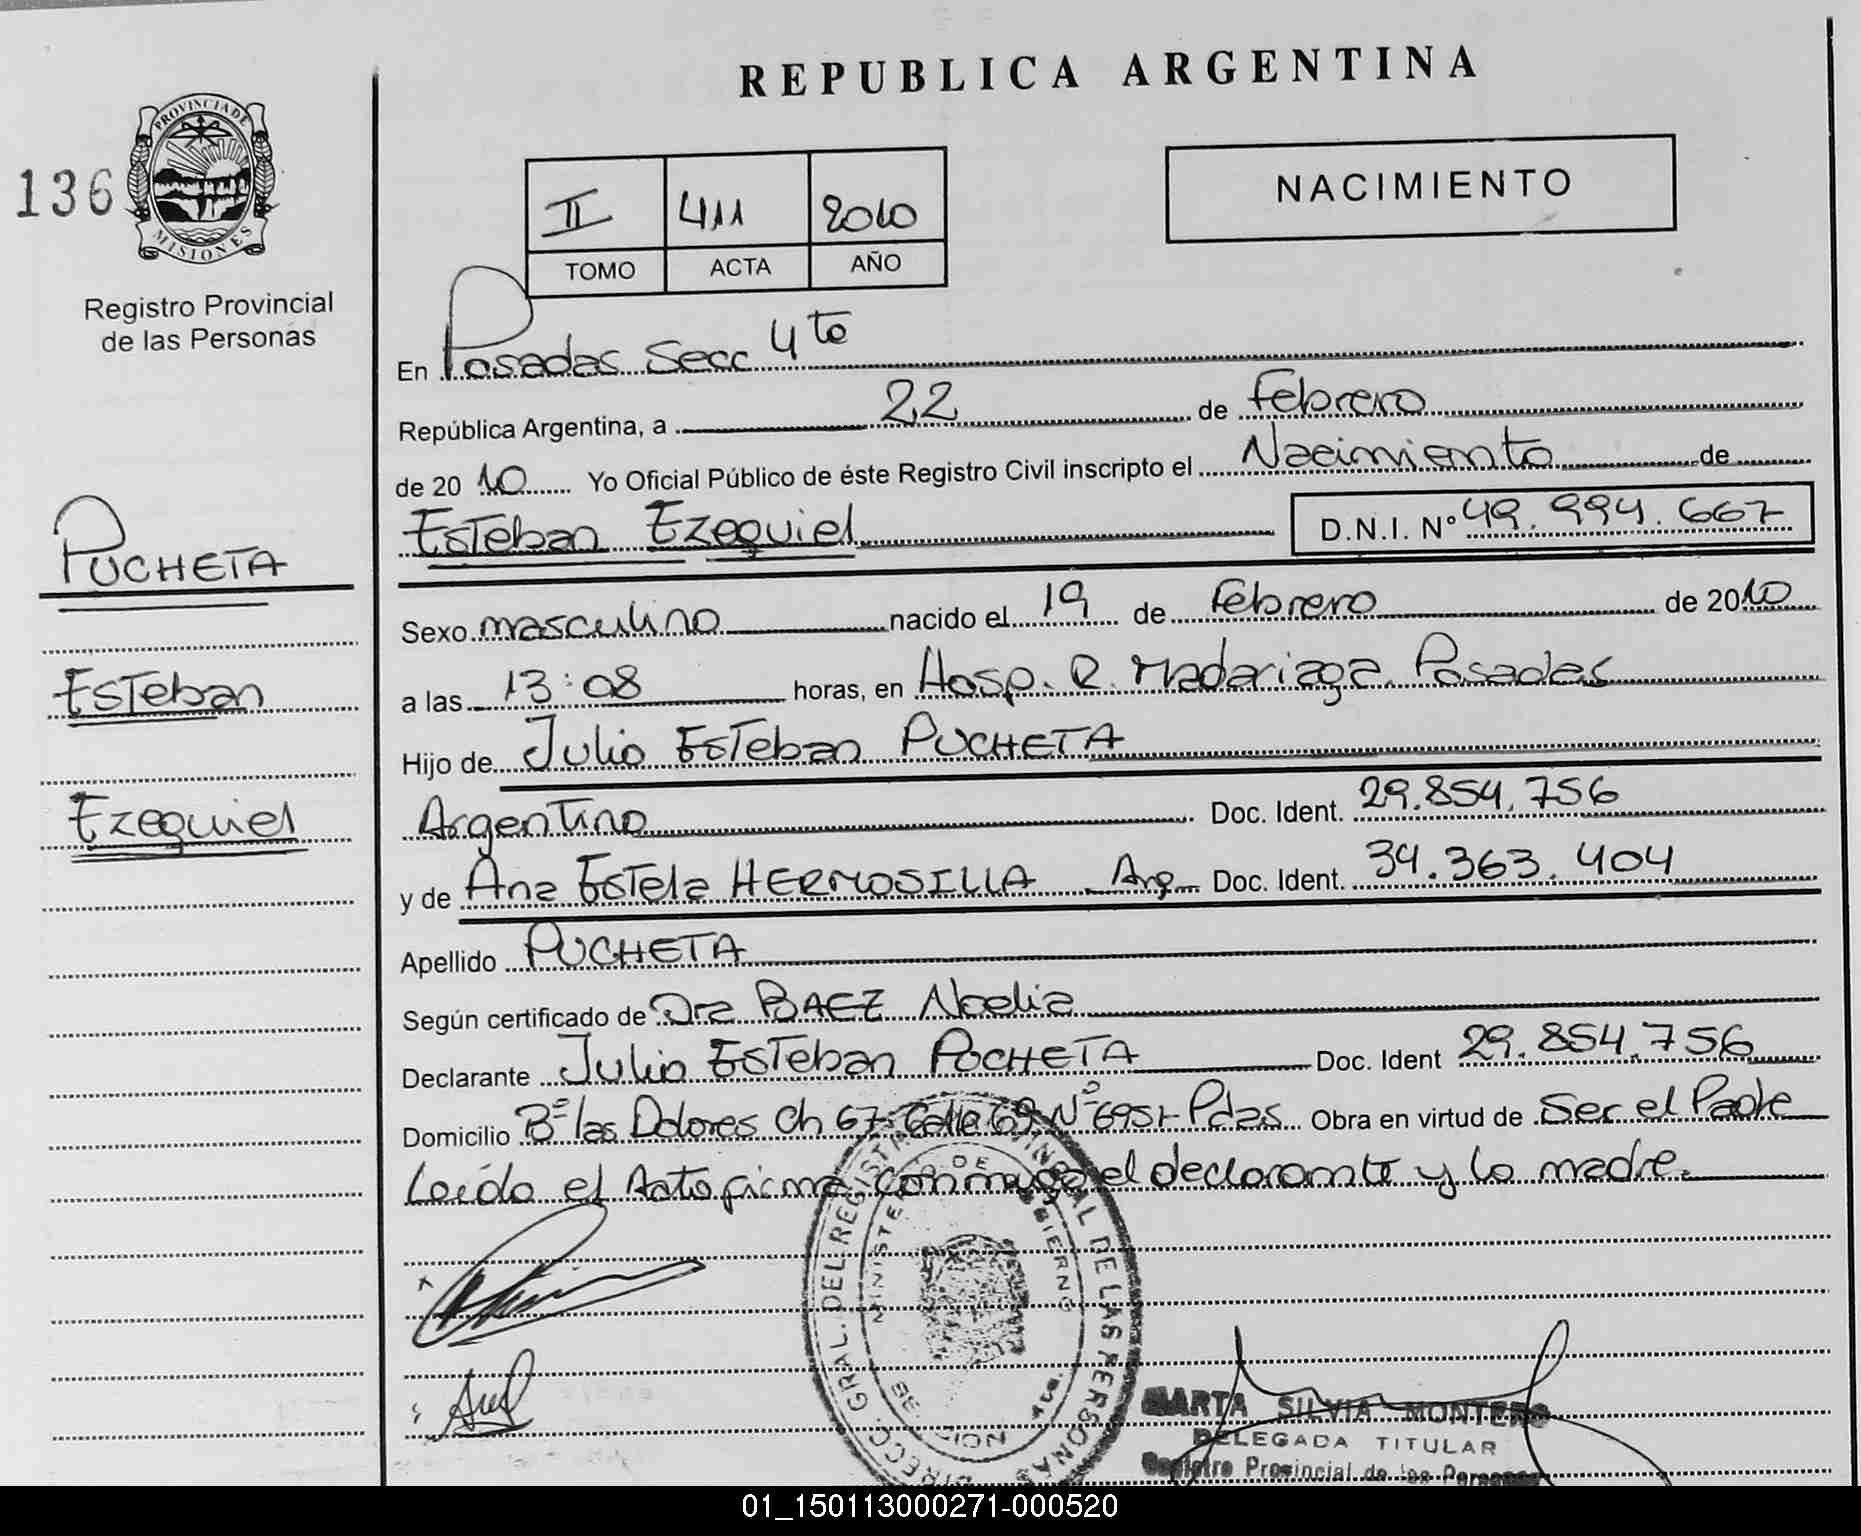 REPUBLICA ARGENTINA
136
PROVINCIA DE
MISIONES
Registro Provincial
de las Personas
II 411 2010
TOMO ACTA AÑO
NACIMIENTO
En Posadas Secc 4to
República Argentina, a 22 de Febrero
de 2010 Yo Oficial Público de éste Registro Civil inscripto el Nacimiento de
Esteban Ezequiel D.N.I. Nº 49.994.667
PUCHETA
Sexo masculino nacido el 19 de Febrero de 2010
Esteban
a las 13:08 horas, en Hosp. R. Madariaga. Posadas
Hijo de Julio Esteban PUCHETA
Ezequiel
Argentino Doc. Ident. 29.854.756
y de Ana Estela HERMOSILLA Arg Doc. Ident. 34.363.404
Apellido PUCHETA
Según certificado de Dra BAEZ Noelia
Declarante Julio Esteban PUCHETA Doc. Ident 29.854.756
Domicilio Bº las Dolores Ch 67 Calle 69 Nº 6951- Pdas Obra en virtud de Ser el Padre
Leído el Acta firma conmigo el declarante y la madre.
DIRECC. GRAL. DEL REGISTRO PROVINCIAL DE LAS PERSONAS
MINISTERIO DE GOBIERNO
4ta.
MARTA SILVIA MONTERO
DELEGADA TITULAR
Registro Provincial de las Personas
01_150113000271-000520